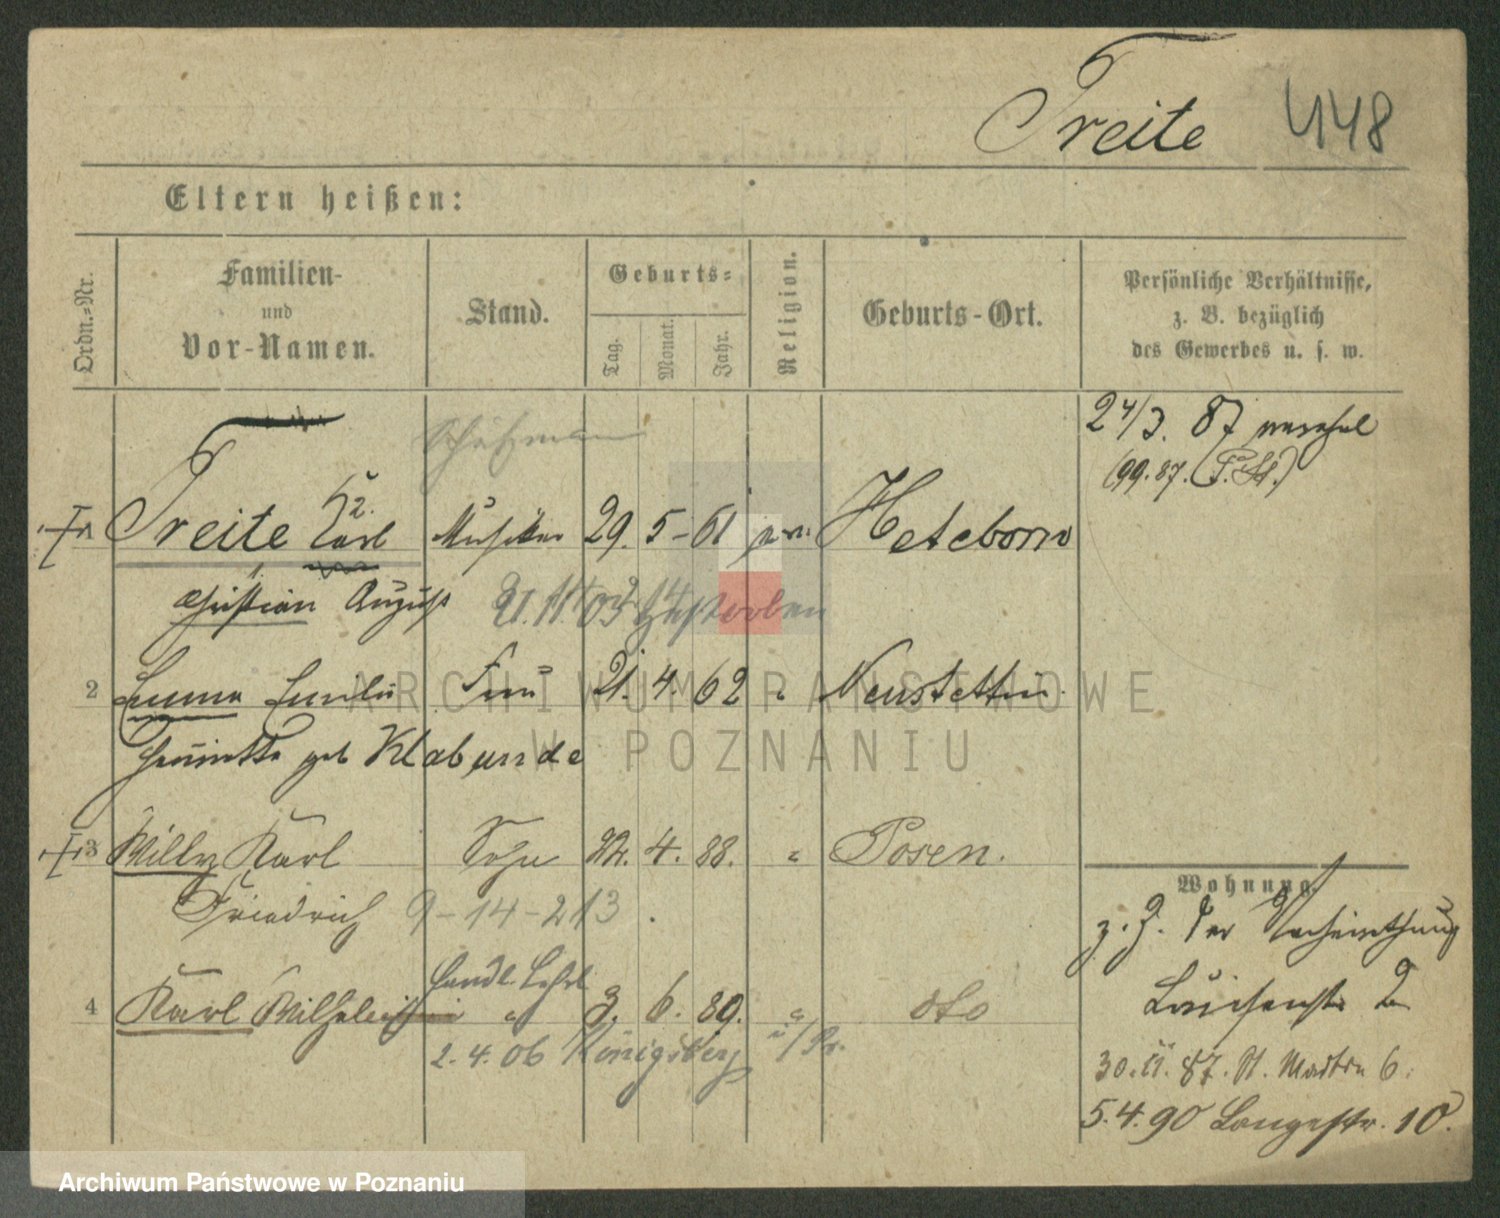 Treite 448
Eltern heißen:
Ordn.-Nr.
Familien-
und
Vor-Namen.
Stand.
Geburts-
Tag.
Monat.
Jahr.
Religion.
Geburts-Ort.
Persönliche Verhältnisse,
z. B. bezüglich
des Gewerbes u. s. w.
24/3. 87
Schutzmann
Treite Carl 2. Musiker 29. 5-61 Heteborn
Christian August
21.11.03 gestorben
2 Emma Emilie Frau 21. 4. 62 " Neustettin.
Henriette geb Klabunde
3 Willy Karl Sohn 22. 4. 88. " Posen.
Friedrich 9-14-213.
Handl. Lehrl
4 Karl Wilhelm " 3. 6. 89. " dto
2. 4. 06 Königsberg i/Pr.
Wohnung.
z. Z. der Verheirathung
Louisenstr 2
30.11.87. St. Martin 6.
5.4.90 Langestr. 10.
ARCHIWUM PAŃSTWOWE
W POZNANIU
Archiwum Państwowe w Poznaniu